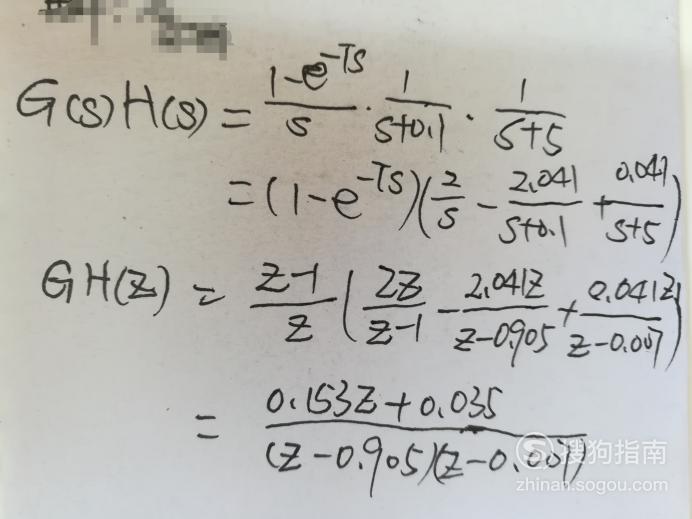 G(s)H(s) = \frac{1-e^{-Ts}}{s} · \frac{1}{s+0.1} · \frac{1}{s+5}
= (1-e^{-Ts})(\frac{2}{s} - \frac{2.041}{s+0.1} + \frac{0.041}{s+5})
GH(z) = \frac{z-1}{z} (\frac{2z}{z-1} - \frac{2.041z}{z-0.905} + \frac{0.041z}{z-0.007})
= \frac{0.153z+0.035}{(z-0.905)(z-0.007)}
搜狗指南
zhinan.sogou.com